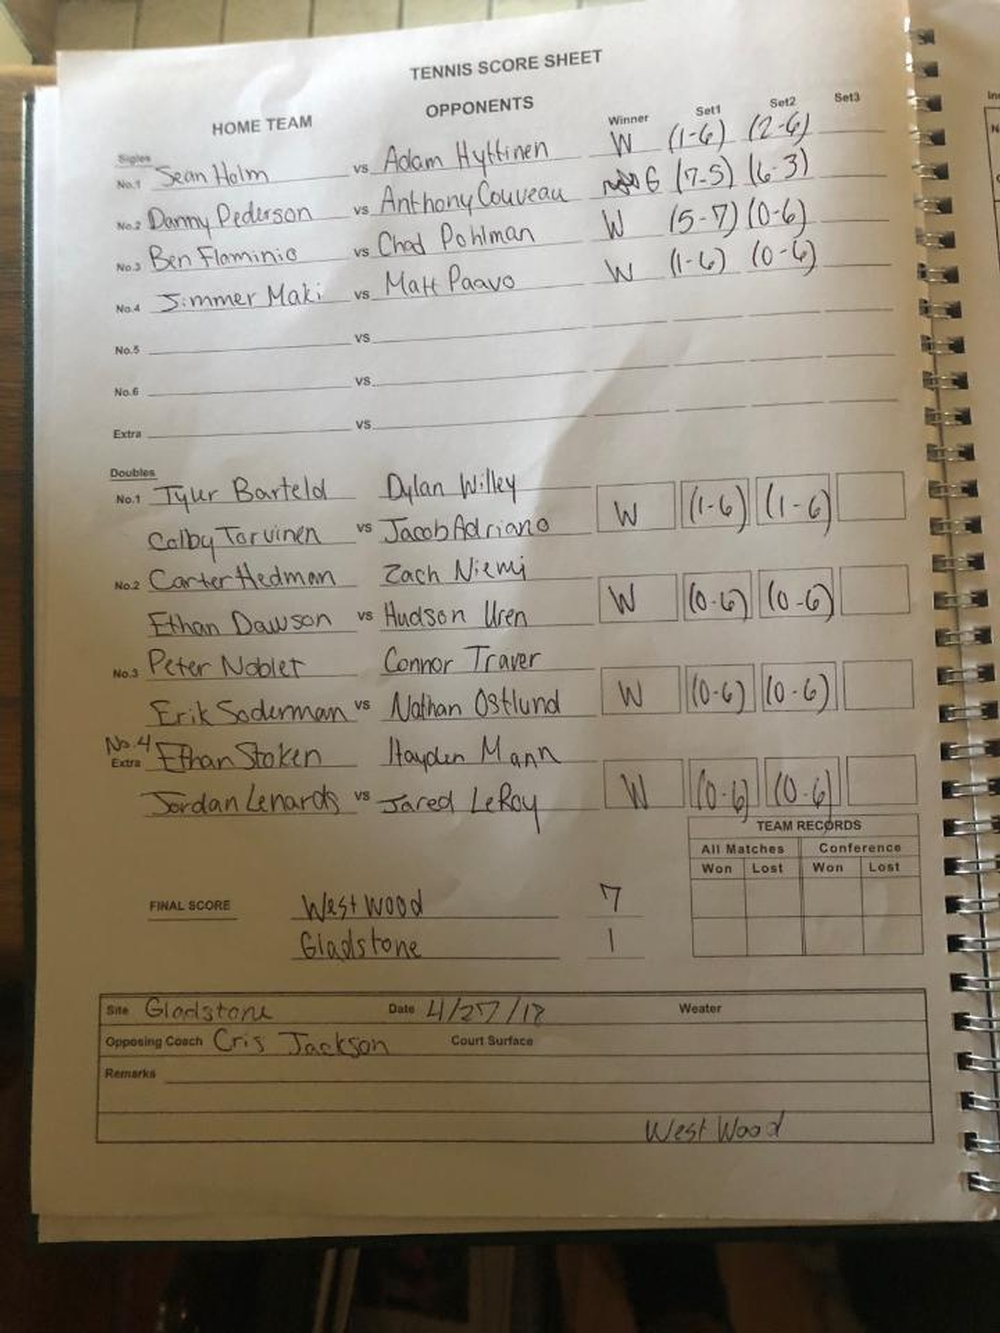 TENNIS SCORE SHEET
HOME TEAM OPPONENTS Winner Set1 Set2 Set3
Sigles
No.1 Sean Holm vs Adam Hyttinen W (1-6) (2-6)
No.2 Danny Pederson vs Anthony Couveau G (7-5) (6-3)
No.3 Ben Flaminio vs Chad Pohlman W (5-7) (0-6)
No.4 Jimmer Maki vs Matt Paavo W (1-6) (0-6)
No.5 vs
No.6 vs
Extra vs
Doubles
No.1 Tyler Barteld Dylan Willey
Colby Torvinen vs Jacob Adriano W (1-6) (1-6)
No.2 Carter Hedman Zach Niemi
Ethan Dawson vs Hudson Uren W (0-6) (0-6)
No.3 Peter Noblet Connor Traver
Erik Soderman vs Nathan Ostlund W (0-6) (0-6)
No.4
Extra Ethan Stoken Hayden Mann
Jordan Lenards vs Jared LeRoy W (0-6) (0-6)
TEAM RECORDS
All Matches Conference
Won Lost Won Lost
FINAL SCORE West wood 7
Gladstone 1
Site Gladstone Date 4/27/18 Weater
Opposing Coach Cris Jackson Court Surface
Remarks
West Wood